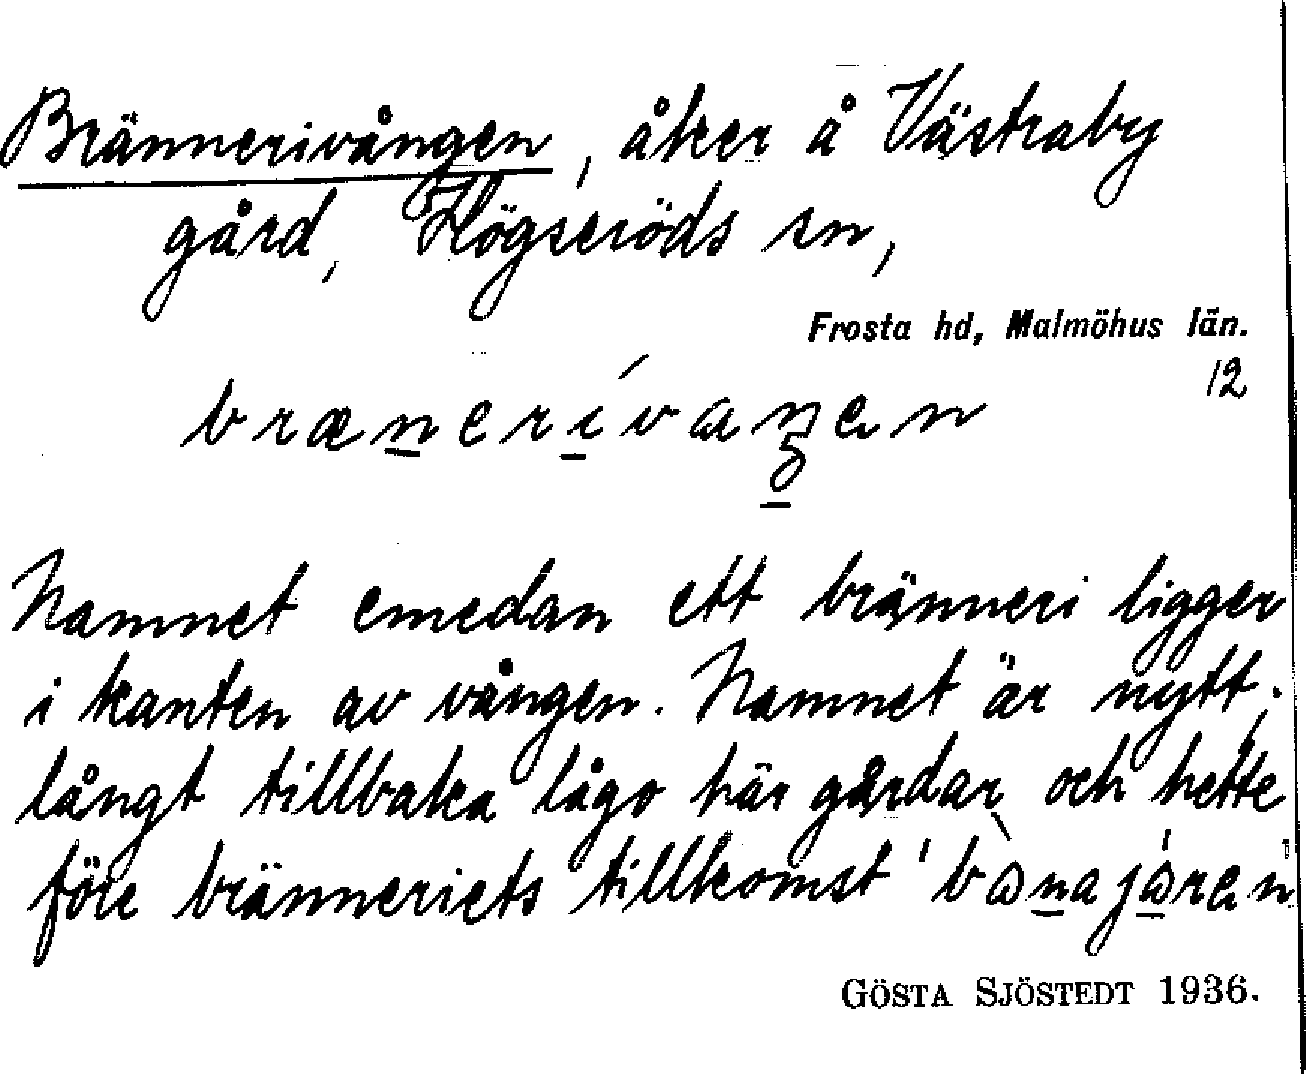 Brännerivången, åker å Västraby
gård, Högseröds sn,
Frosta hd, Malmöhus län.
12
Namnet emedan ett bränneri ligger
i kanten av vången. Namnet är nytt;
långt tillbaka lågo här gårdar och hette
före bränneriets tillkomst
GÖSTA SJÖSTEDT 1936.